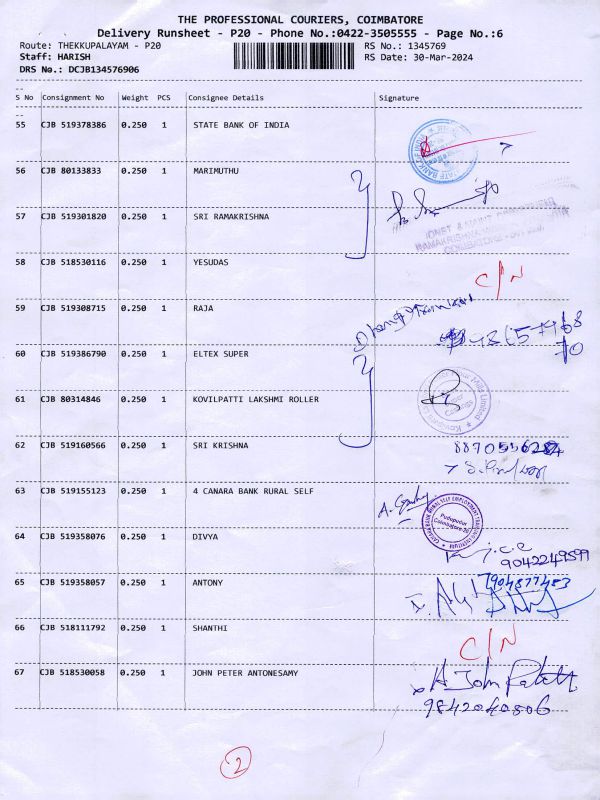 THE PROFESSIONAL COURIERS, COIMBATORE
Delivery Runsheet - P20 - Phone No.:0422-3505555 - Page No.:6
Route: THEKKUPALAYAM - P20
RS No.: 1345769
Staff: HARISH
RS Date: 30-Mar-2024
DRS No.: DCJB134576906
S No Consignment No Weight PCS Consignee Details Signature
55 CJB 519378386 0.250 1 STATE BANK OF INDIA
56 CJB 80133833 0.250 1 MARIMUTHU
57 CJB 519301820 0.250 1 SRI RAMAKRISHNA
58 CJB 518530116 0.250 1 YESUDAS C/N
59 CJB 519308715 0.250 1 RAJA
60 CJB 519386790 0.250 1 ELTEX SUPER
61 CJB 80314846 0.250 1 KOVILPATTI LAKSHMI ROLLER
62 CJB 519160566 0.250 1 SRI KRISHNA
63 CJB 519155123 0.250 1 4 CANARA BANK RURAL SELF
Pudupudur
Coimbatore
64 CJB 519358076 0.250 1 DIVYA
9042249599
65 CJB 519358057 0.250 1 ANTONY
7904877453
66 CJB 518111792 0.250 1 SHANTHI C/N
67 CJB 518530058 0.250 1 JOHN PETER ANTONESAMY
A John
9842040806
2